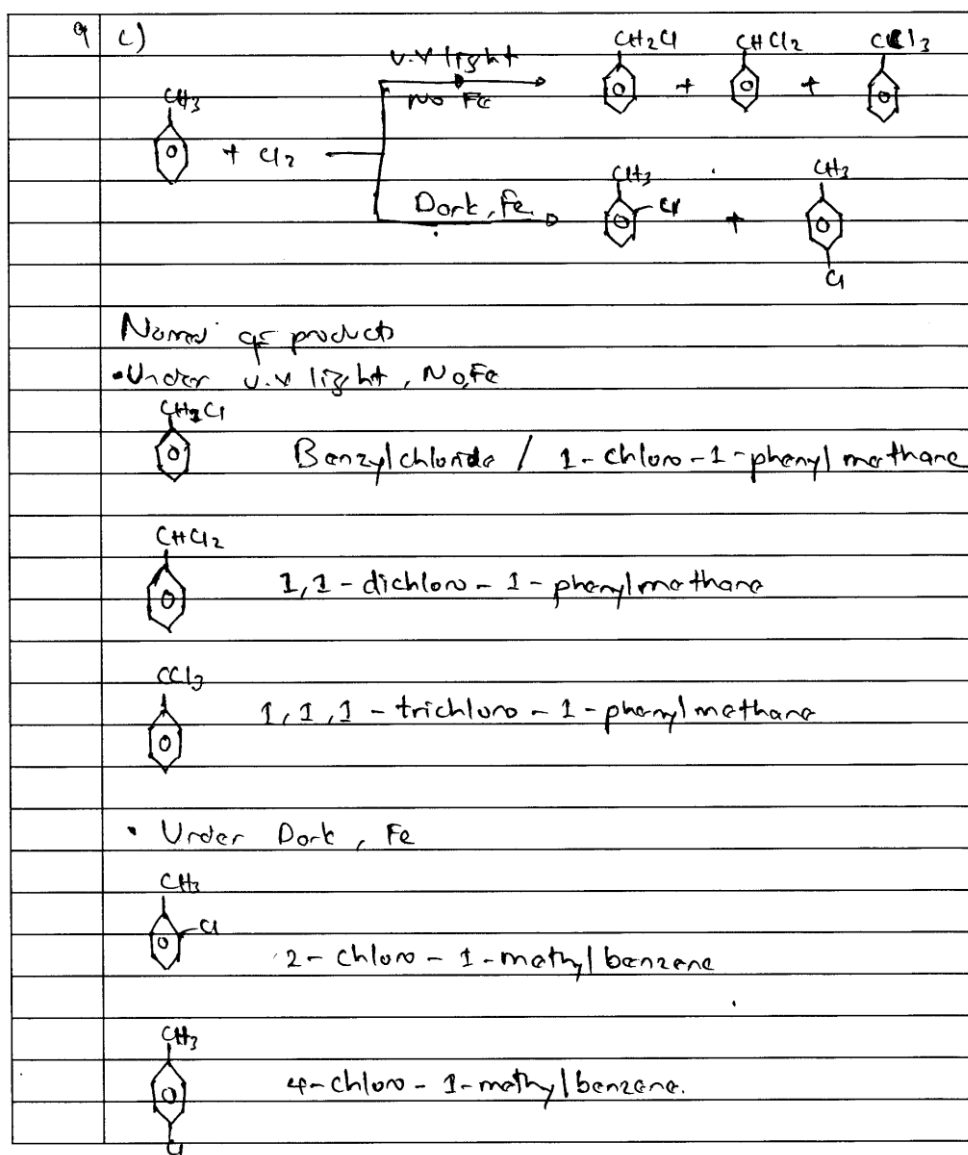 9 c)
u.v light
No Fe
CH2Cl CHCl2 CCl3
+ +
CH3
+ Cl2
Dark, Fe
CH3 Cl + CH3 Cl
Names of products
• Under u.v light, No, Fe
CH2Cl
Benzylchloride / 1-chloro-1-phenyl methane
CHCl2
1,1-dichloro-1-phenylmethane
CCl3
1,1,1-trichloro-1-phenylmethane
• Under Dark, Fe
CH3
Cl
2-chloro-1-methylbenzene
CH3
4-chloro-1-methylbenzene.
Cl